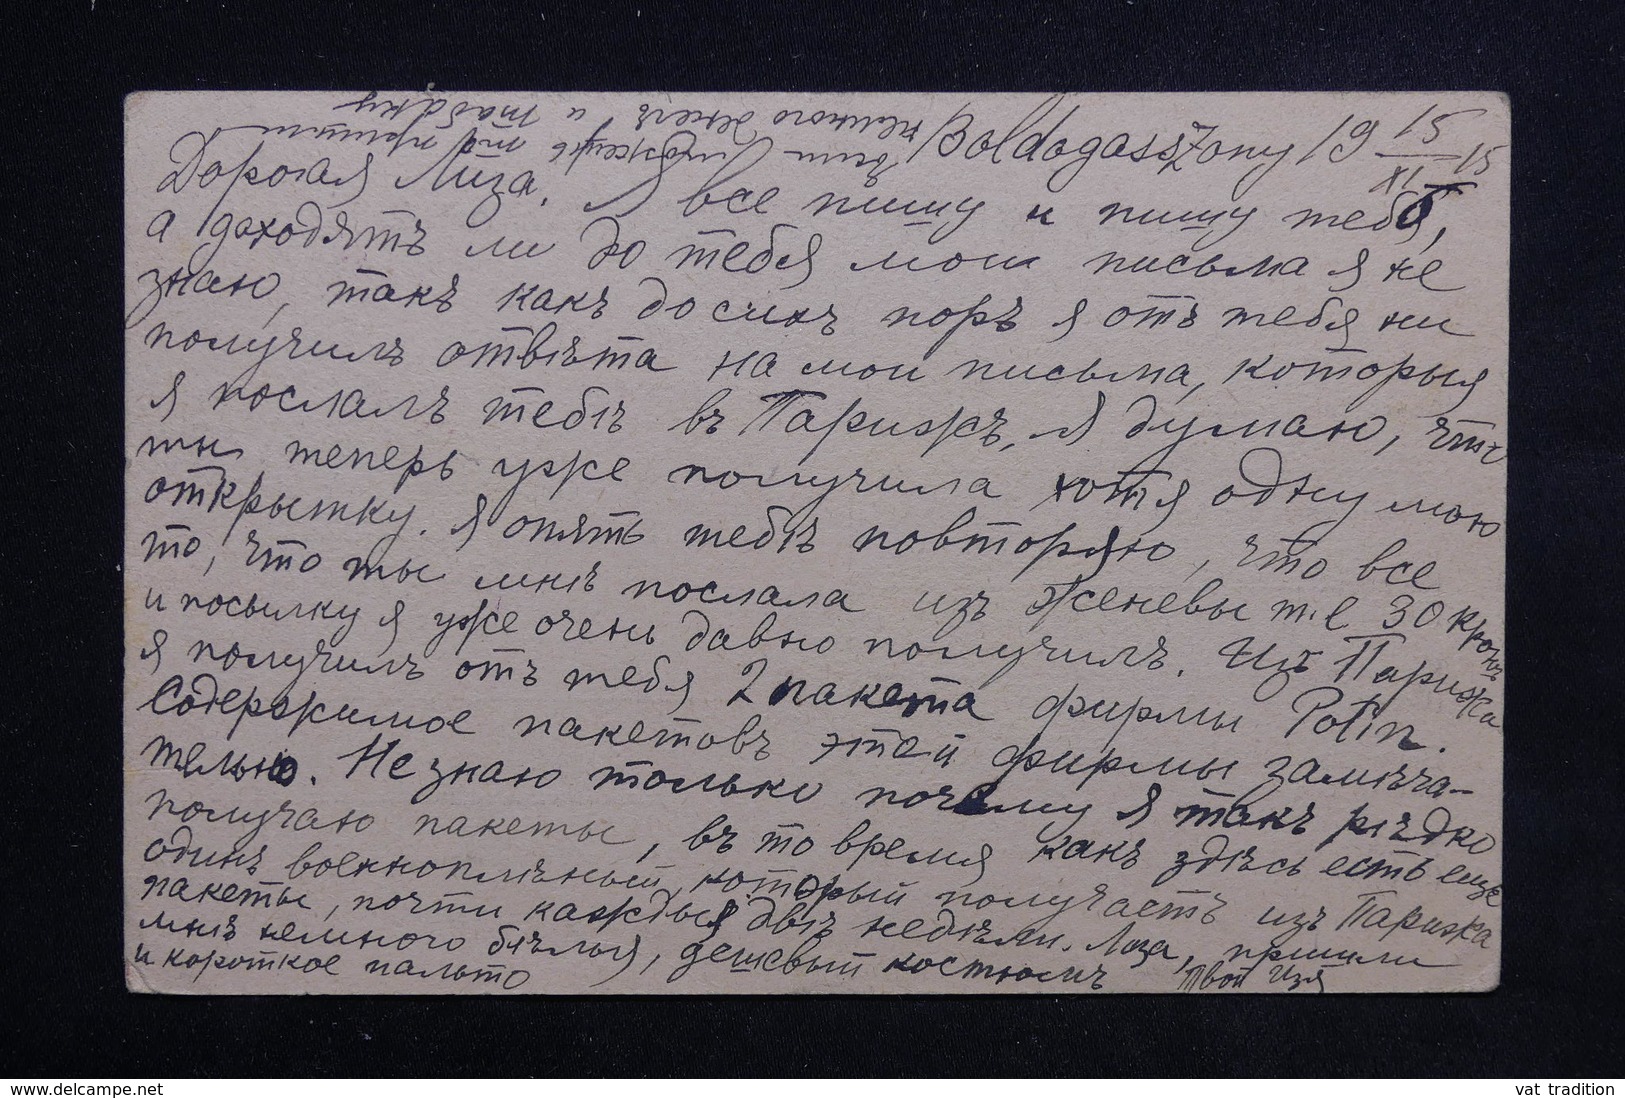 Boldogasszony 19 15/XI 15
Дорогая Лиза! Я все пишу и пишу тебѣ,
а доходятъ ли до тебя мои письма я не
знаю, такъ какъ до сихъ поръ я отъ тебя ни
получилъ отвѣта на мои письма, которыя
я послалъ тебѣ въ Парижъ. Я думаю, что
ты теперь уже получила хотя одну мою
открытку. Я опять тебѣ повторяю, что все
то, что ты мнѣ послала изъ Женевы т.е 30 кронъ
и посылку я уже очень давно получилъ. Изъ Парижа
я получилъ отъ тебя 2 пакета фирмы Potin.
Содержимое пакетовъ этой фирмы замѣча-
тельно. Не знаю только почему я такъ рѣдко
получаю пакеты, въ то время какъ здѣсь есть еще
одинъ военноплѣнный, который получаетъ изъ Парижа
пакеты, почти каждыя двѣ недѣли. Лиза, пришли
мнѣ немного бѣлья, дешевый костюмъ
и короткое пальто Твой Изя
то пришли
немного денегъ и табаку
www.delcampe.net
vat tradition